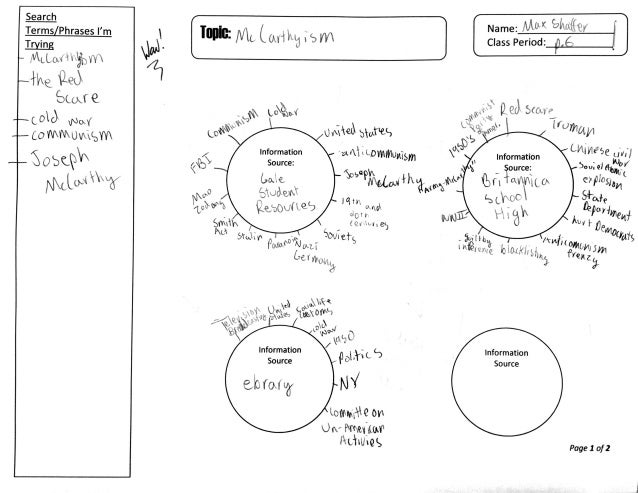 Search
Terms/Phrases I'm
Trying
McCarthyism
the Red
Scare
cold war
communism
Joseph
McCarthy
Wow!
Topic: McCarthyism
Name: Max Shaffer
Class Period: p.6
Information
Source:
Gale
Student
Resources
Communism
Cold
war
United States
anticommunism
Joseph
McCarthy
19th and
20th
centuries
Soviets
Nazi
Germany
Paranoia
Stalin
Smith
Act
Mao
Zedong
FBI
Information
Source:
Britannica
School
High
1950's
Communist
Red Scare
Truman
Chinese civil
war
Soviet Atomic
explosion
State
Department
hurt Democrats
Anticommunism
frenzy
blacklisting
guilt by
inference
WWII
"Army-McCarthy"
Information
Source
ebrary
Television
United
States
Social life
customs
cold
war
1950
Politics
NY
Committee on
Un-American
Activities
Information
Source
Page 1 of 2